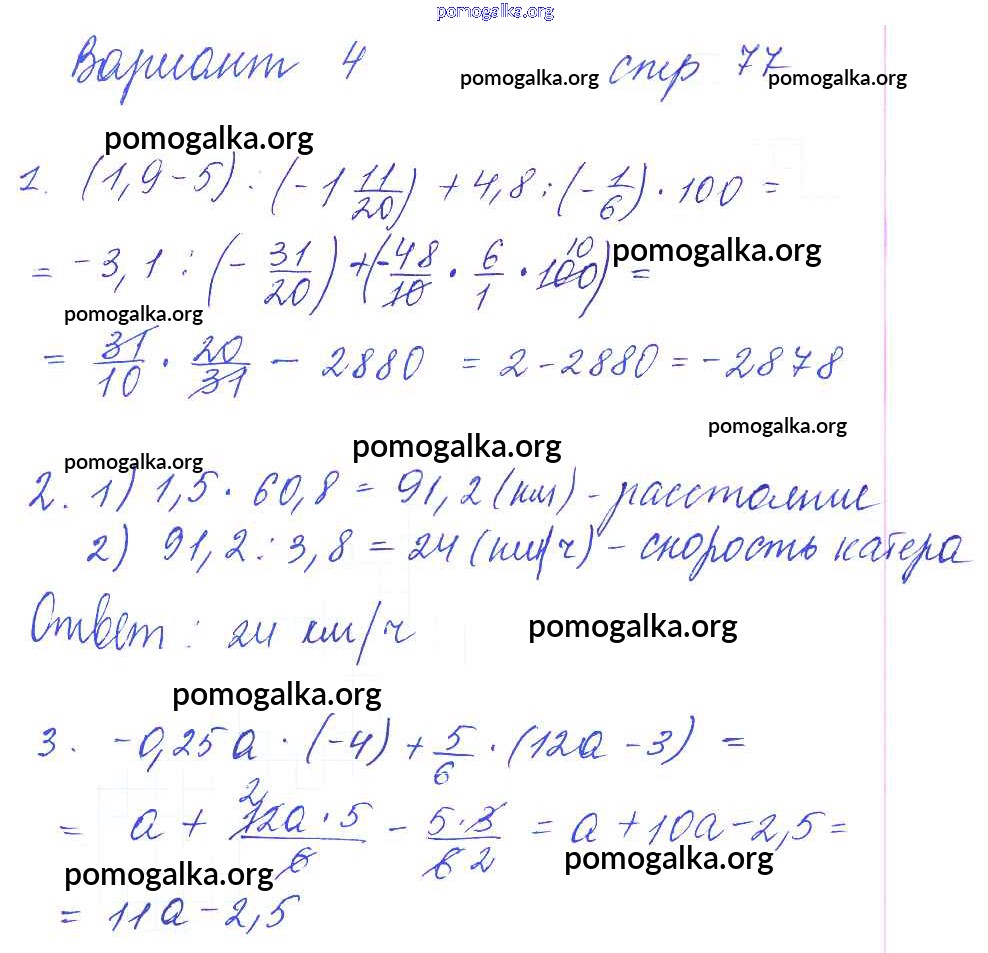 pomogalka.org
Вариант 4 pomogalka.org стр 77 pomogalka.org
pomogalka.org
1. (1,9 - 5) : (-1 11/20) + 4,8 : (-1/6) · 100 =
= -3,1 : (-31/20) + (-48/10 · 6/1 · 100 10) = pomogalka.org
pomogalka.org
= 31/10 · 20/31 - 2880 = 2 - 2880 = -2878
pomogalka.org
pomogalka.org
pomogalka.org
2. 1) 1,5 · 60,8 = 91,2 (км) - расстояние
2) 91,2 : 3,8 = 24 (км/ч) - скорость катера
Ответ : 24 км/ч pomogalka.org
pomogalka.org
3. -0,25a · (-4) + 5/6 · (12a - 3) =
= a + 2 12a · 5/6 - 5·3/6 2 = a + 10a - 2,5 =
pomogalka.org pomogalka.org
= 11a - 2,5